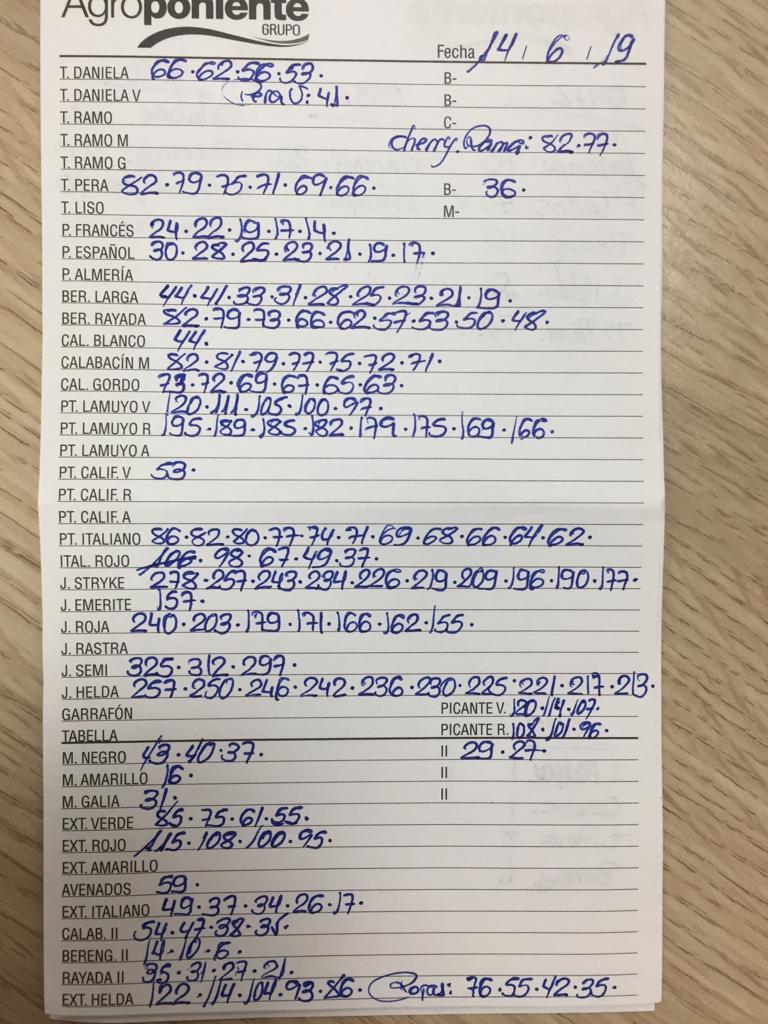 Agroponiente
GRUPO
Fecha 14 / 6 / 19
T. DANELA 66·62·56·53· B-
T. DANIELA V (Pera V: 41· B-
T. RAMO C-
T. RAMO M cherry Rama: 82·77·
T. RAMO G
T. PERA 82·79·75·71·69·66· B- 36·
T. LISO M-
P. FRANCÉS 24·22·19·17·14·
P. ESPAÑOL 30·28·25·23·21·19·17·
P. ALMERÍA
BER. LARGA 44·41·33·31·28·25·23·21·19·
BER. RAYADA 82·79·73·66·62·57·53·50·48·
CAL. BLANCO 44·
CALABACÍN M 82·81·79·77·75·72·71·
CAL. GORDO 73·72·69·67·65·63·
PT. LAMUYO V 120·111·105·100·97·
PT. LAMUYO R 195·189·185·182·179·175·169·166·
PT. LAMUYO A
PT. CALIF. V 53·
PT. CALIF. R
PT. CALIF. A
PT. ITALIANO 86·82·80·77·74·71·69·68·66·64·62·
ITAL. ROJO 106·98·67·49·37·
J. STRYKE 278·257·243·234·226·219·209·196·190·177·
J. EMERITE 157·
J. ROJA 240·203·179·171·166·162·155·
J. RASTRA
J. SEMI 325·312·297·
J. HELDA 257·250·246·242·236·230·225·221·217·213·
GARRAFÓN PICANTE V. 120·114·107·
TABELLA PICANTE R. 108·101·96·
M. NEGRO 43·40·37· II 29·27·
M. AMARILLO 16· II
M. GALIA 31· II
EXT. VERDE 85·75·61·55·
EXT. ROJO 115·108·100·95·
EXT. AMARILLO
AVENADOS 59·
EXT. ITALIANO 49·37·34·26·17·
CALAB. II 54·47·38·35·
BERENG. II 14·10·6·
RAYADA II 35·31·27·21·
EXT. HELDA 122·114·104·93·86· Rojas: 76·55·42·35·